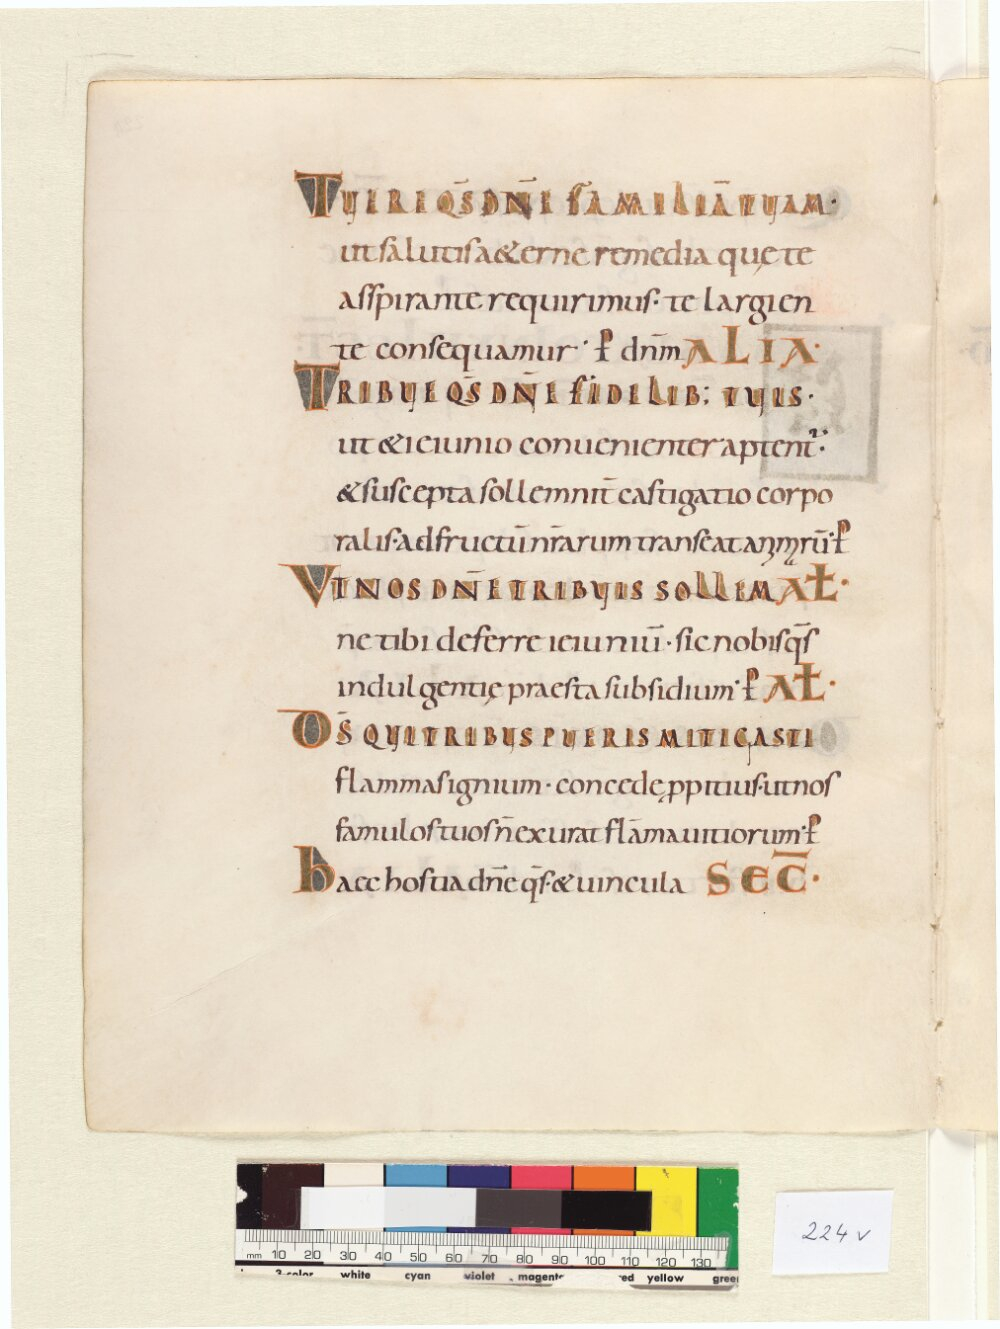 TUERE Q̄S DN̄E FAMILIĀ TUAM·
ut salutis a&erne remedia quę te
asspirante requirimus· te largien
te consequamur· P̄ dn̄m ALIA·
TRIBUE Q̄S DN̄E FIDELIB; TUIS·
ut & ieiunio conuenienter aptent̄·
& suscepta sollemnit̄ castigatio corpo
ralis· ad fructū nr̄arum transeat
UT NOS DN̄E TRIBUIS SOLLEM AŁ·
ne tibi deferre ieiuniū· sic nobis q̄s
indulgentię praesta subsidium· P̄ AŁ·
DS̄ QUI TRIBUS PUERIS MITIGASTI
flammas ignium· concedę ppitius· ut nos
famulos tuos n̄ exurat flāma uitiorum· P̄
haec hostia dn̄e q̄s· & uincula SEC̄·
mm 10 20 30 40 50 60 70 80 90 100 110 120 130
3-color white cyan violet magenta red yellow green
224 v